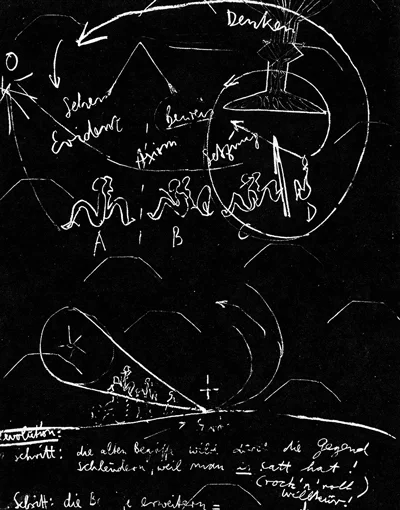 Denken
O
Sehen
Evident
Beweis
Axiom
Setzung
A
B
C
D
Revolution:
Schritt: die alten Begriffe wild durch die Gegend
schleudern, weil man es satt hat!
(rock'n'roll)
willkür!
Schritt: die erweitern =